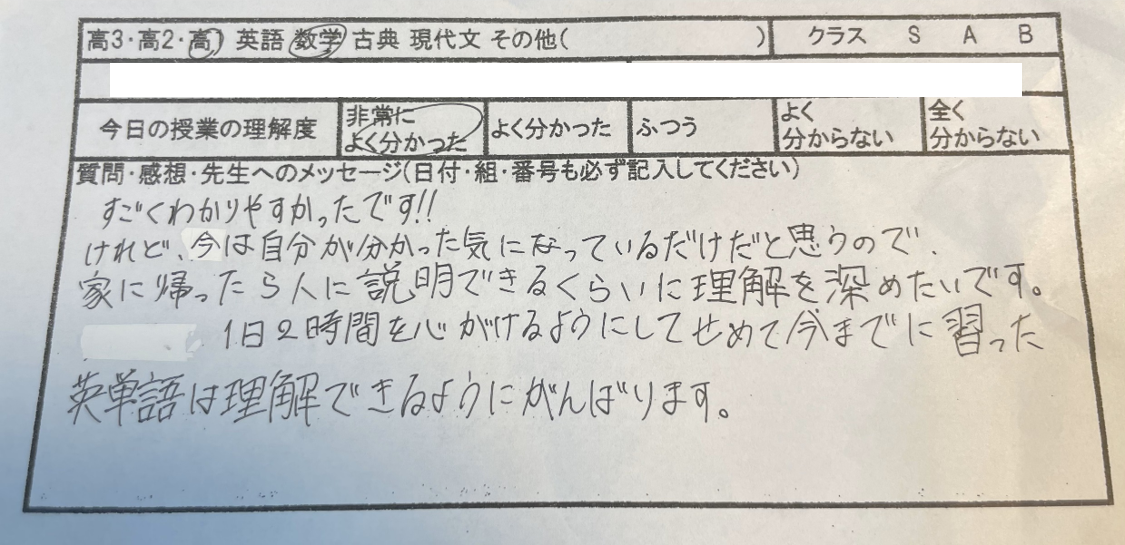 高3・高2・高1 英語 数学 古典 現代文 その他( ) クラス S A B
今日の授業の理解度 非常に よく分かった よく分かった ふつう よく 分からない 全く 分からない
質問・感想・先生へのメッセージ(日付・組・番号も必ず記入してください)
すごくわかりやすかったです!!
けれど、今は自分が分かった気になっているだけだと思うので、
家に帰ったら人に説明できるくらいに理解を深めたいです。
1日2時間を心がけるようにしてせめて今までに習った
英単語は理解できるようにがんばります。